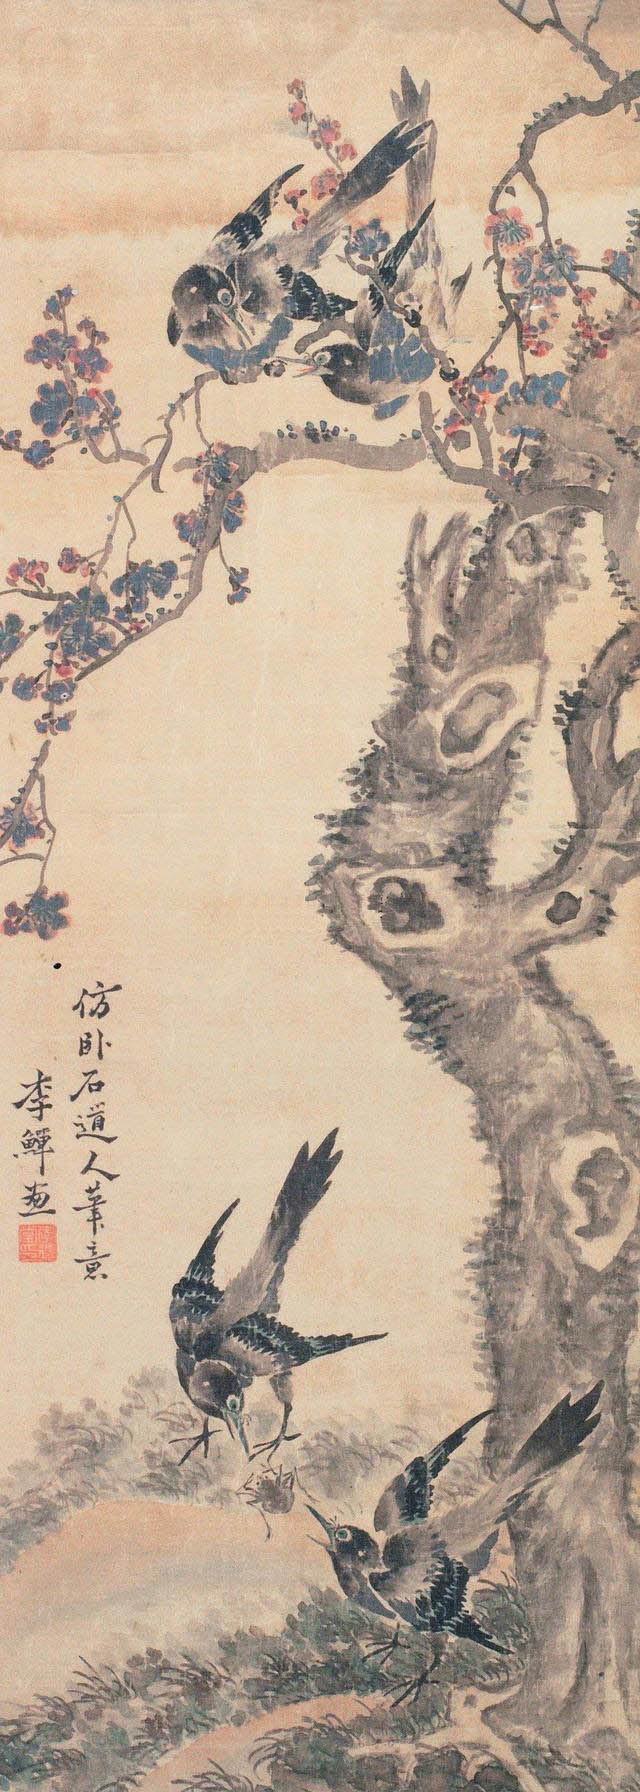 仿卧石道人筆意
李鱓畫